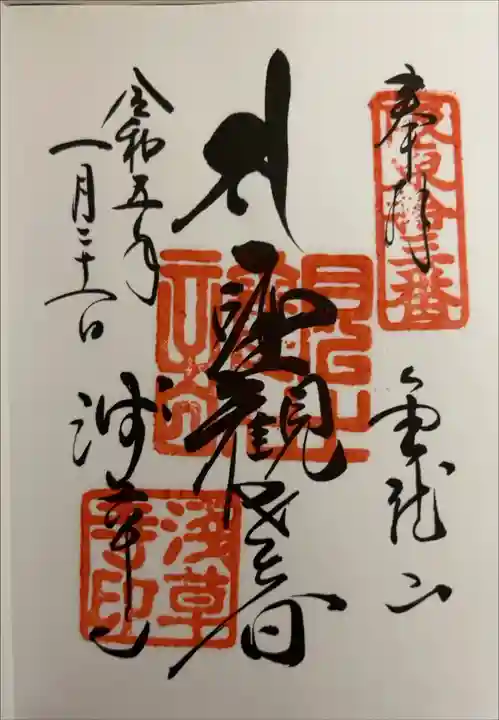 奉拝
坂東拾三番
金龍山
聖観世音
令和五年
一月二十八日
浅草寺
浅草寺印